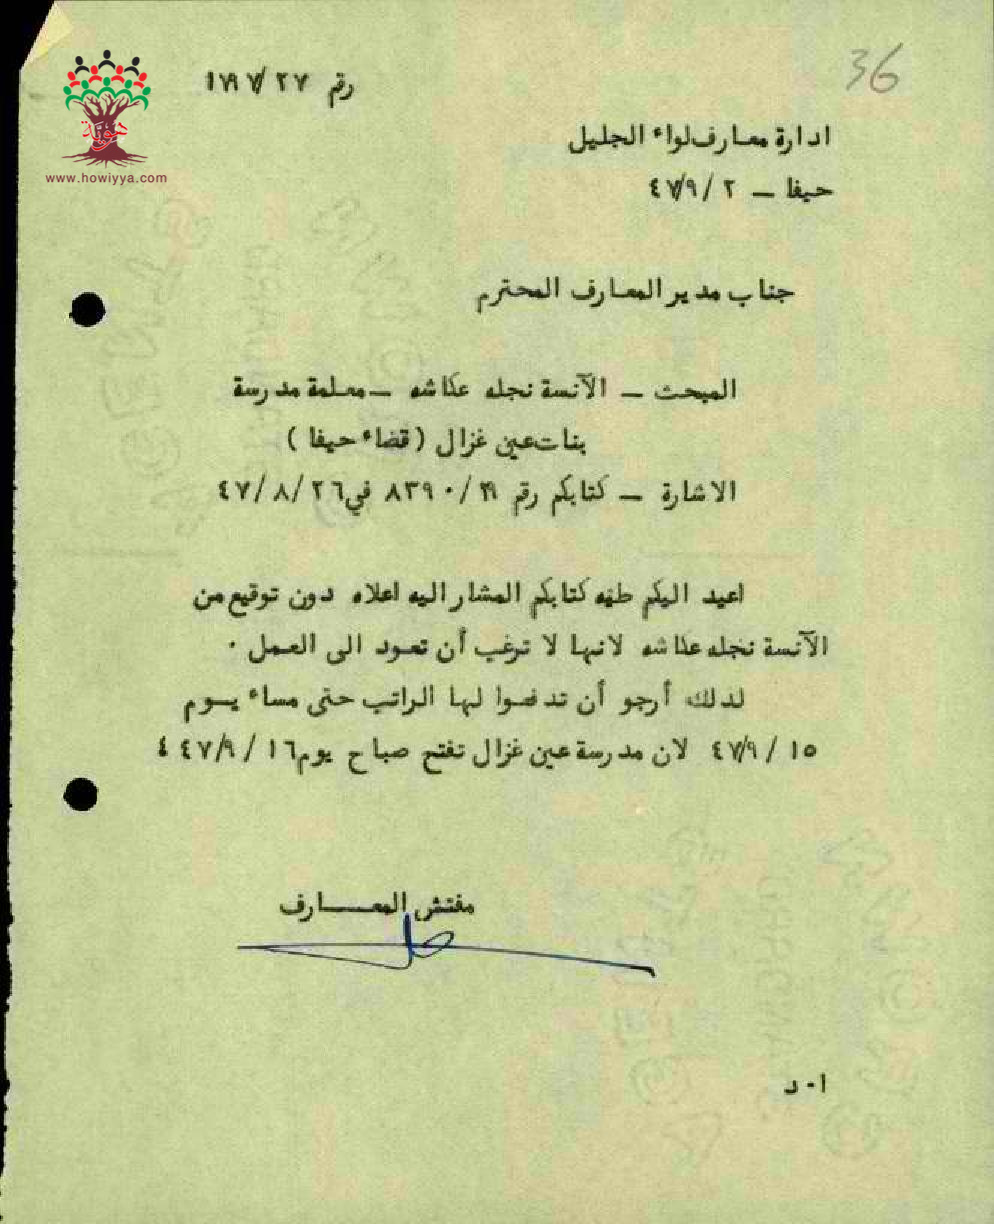 36
رقم ٢٧/
هوية
www.howiyya.com
ادارة معارف لواء الجليل
حيفا – ٢/٩/٤٧
جناب مدير المعارف المحترم
المبحث – الآنسة نجله عكاشه – معلمة مدرسة
بنات عين غزال (قضاء حيفا)
الاشارة – كتابكم رقم في ٢٦/٨/٤٧
اعيد اليكم طيه كتابكم المشار اليه اعلاه دون توقيع من
الآنسة نجله عكاشه لانها لا ترغب أن تعود الى العمل ٠
لذلك أرجو أن تدفعوا لها الراتب حتى مساء يوم
١٥/٩/٤٧ لان مدرسة عين غزال تفتح صباح يوم ١٦/٩/٤٧
مفتش المعارف
ا٠د